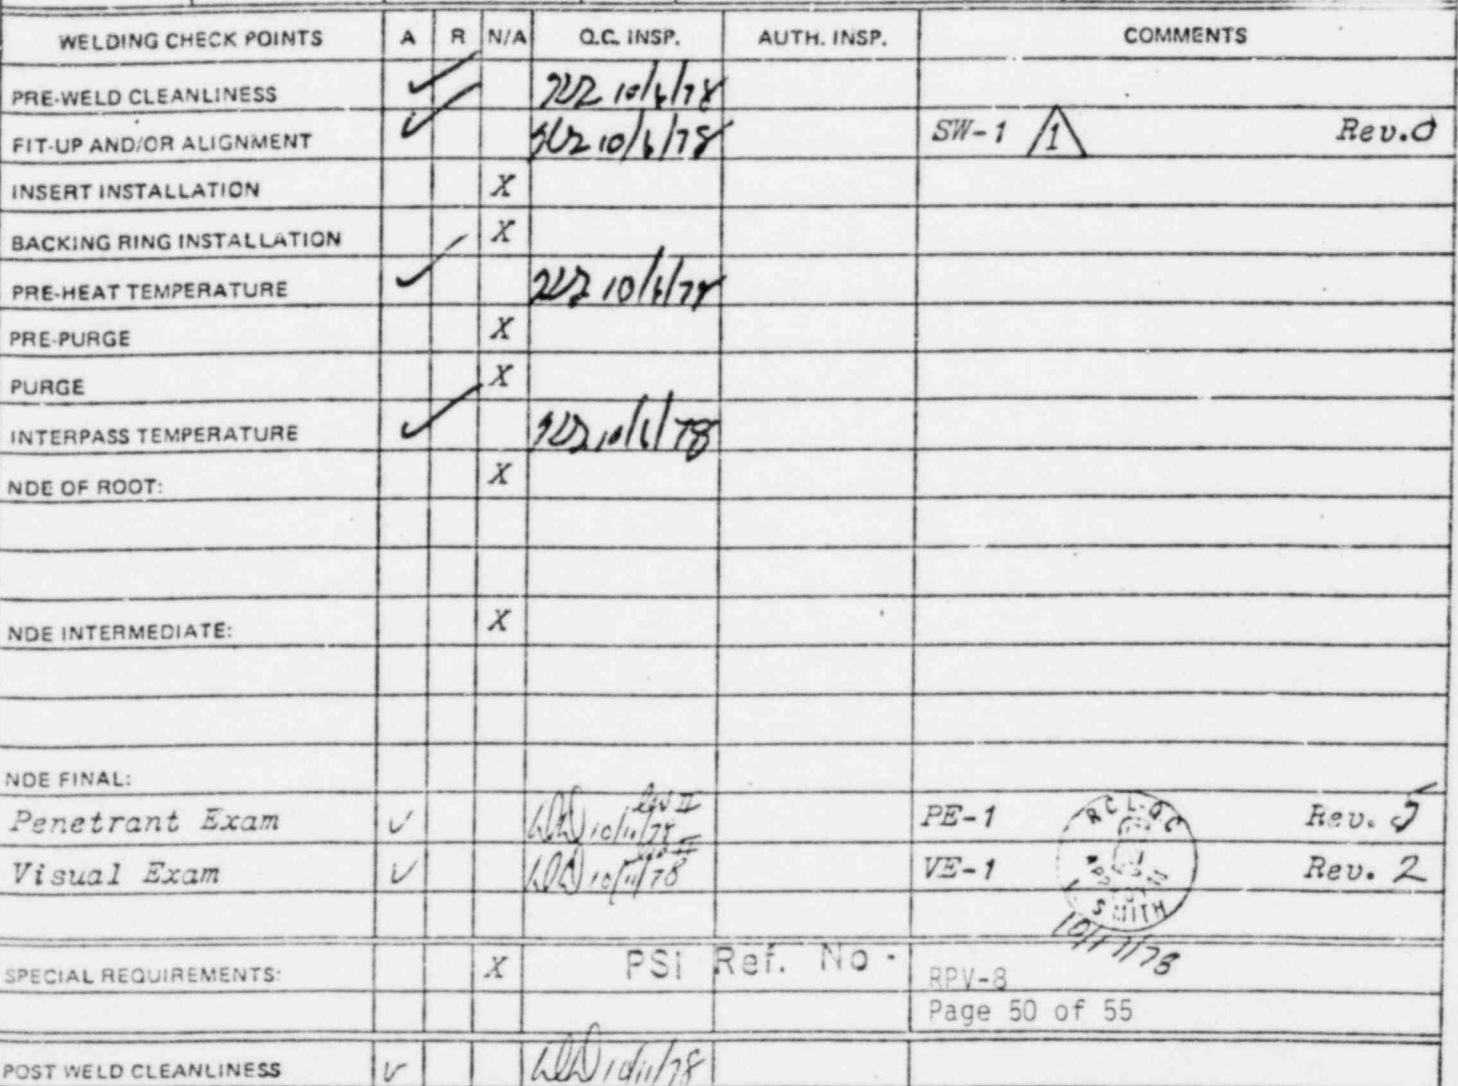 WELDING CHECK POINTS A R N/A Q.C. INSP. AUTH. INSP. COMMENTS
PRE-WELD CLEANLINESS ✓ 10/6/78
FIT-UP AND/OR ALIGNMENT ✓ 10/6/78 SW-1 1 Rev.0
INSERT INSTALLATION X
BACKING RING INSTALLATION X
PRE-HEAT TEMPERATURE ✓ 10/6/78
PRE-PURGE X
PURGE X
INTERPASS TEMPERATURE ✓ 10/6/78
NDE OF ROOT: X
NDE INTERMEDIATE: X
NDE FINAL:
Penetrant Exam ✓ 10/11/78 lev II PE-1 Rev. 5
Visual Exam ✓ 10/11/78 VE-1 Rev. 2
RCL-QC
SMITH
10/17/78
SPECIAL REQUIREMENTS: X PSI Ref. No. RPV-8
Page 50 of 55
POST WELD CLEANLINESS ✓ 10/11/78